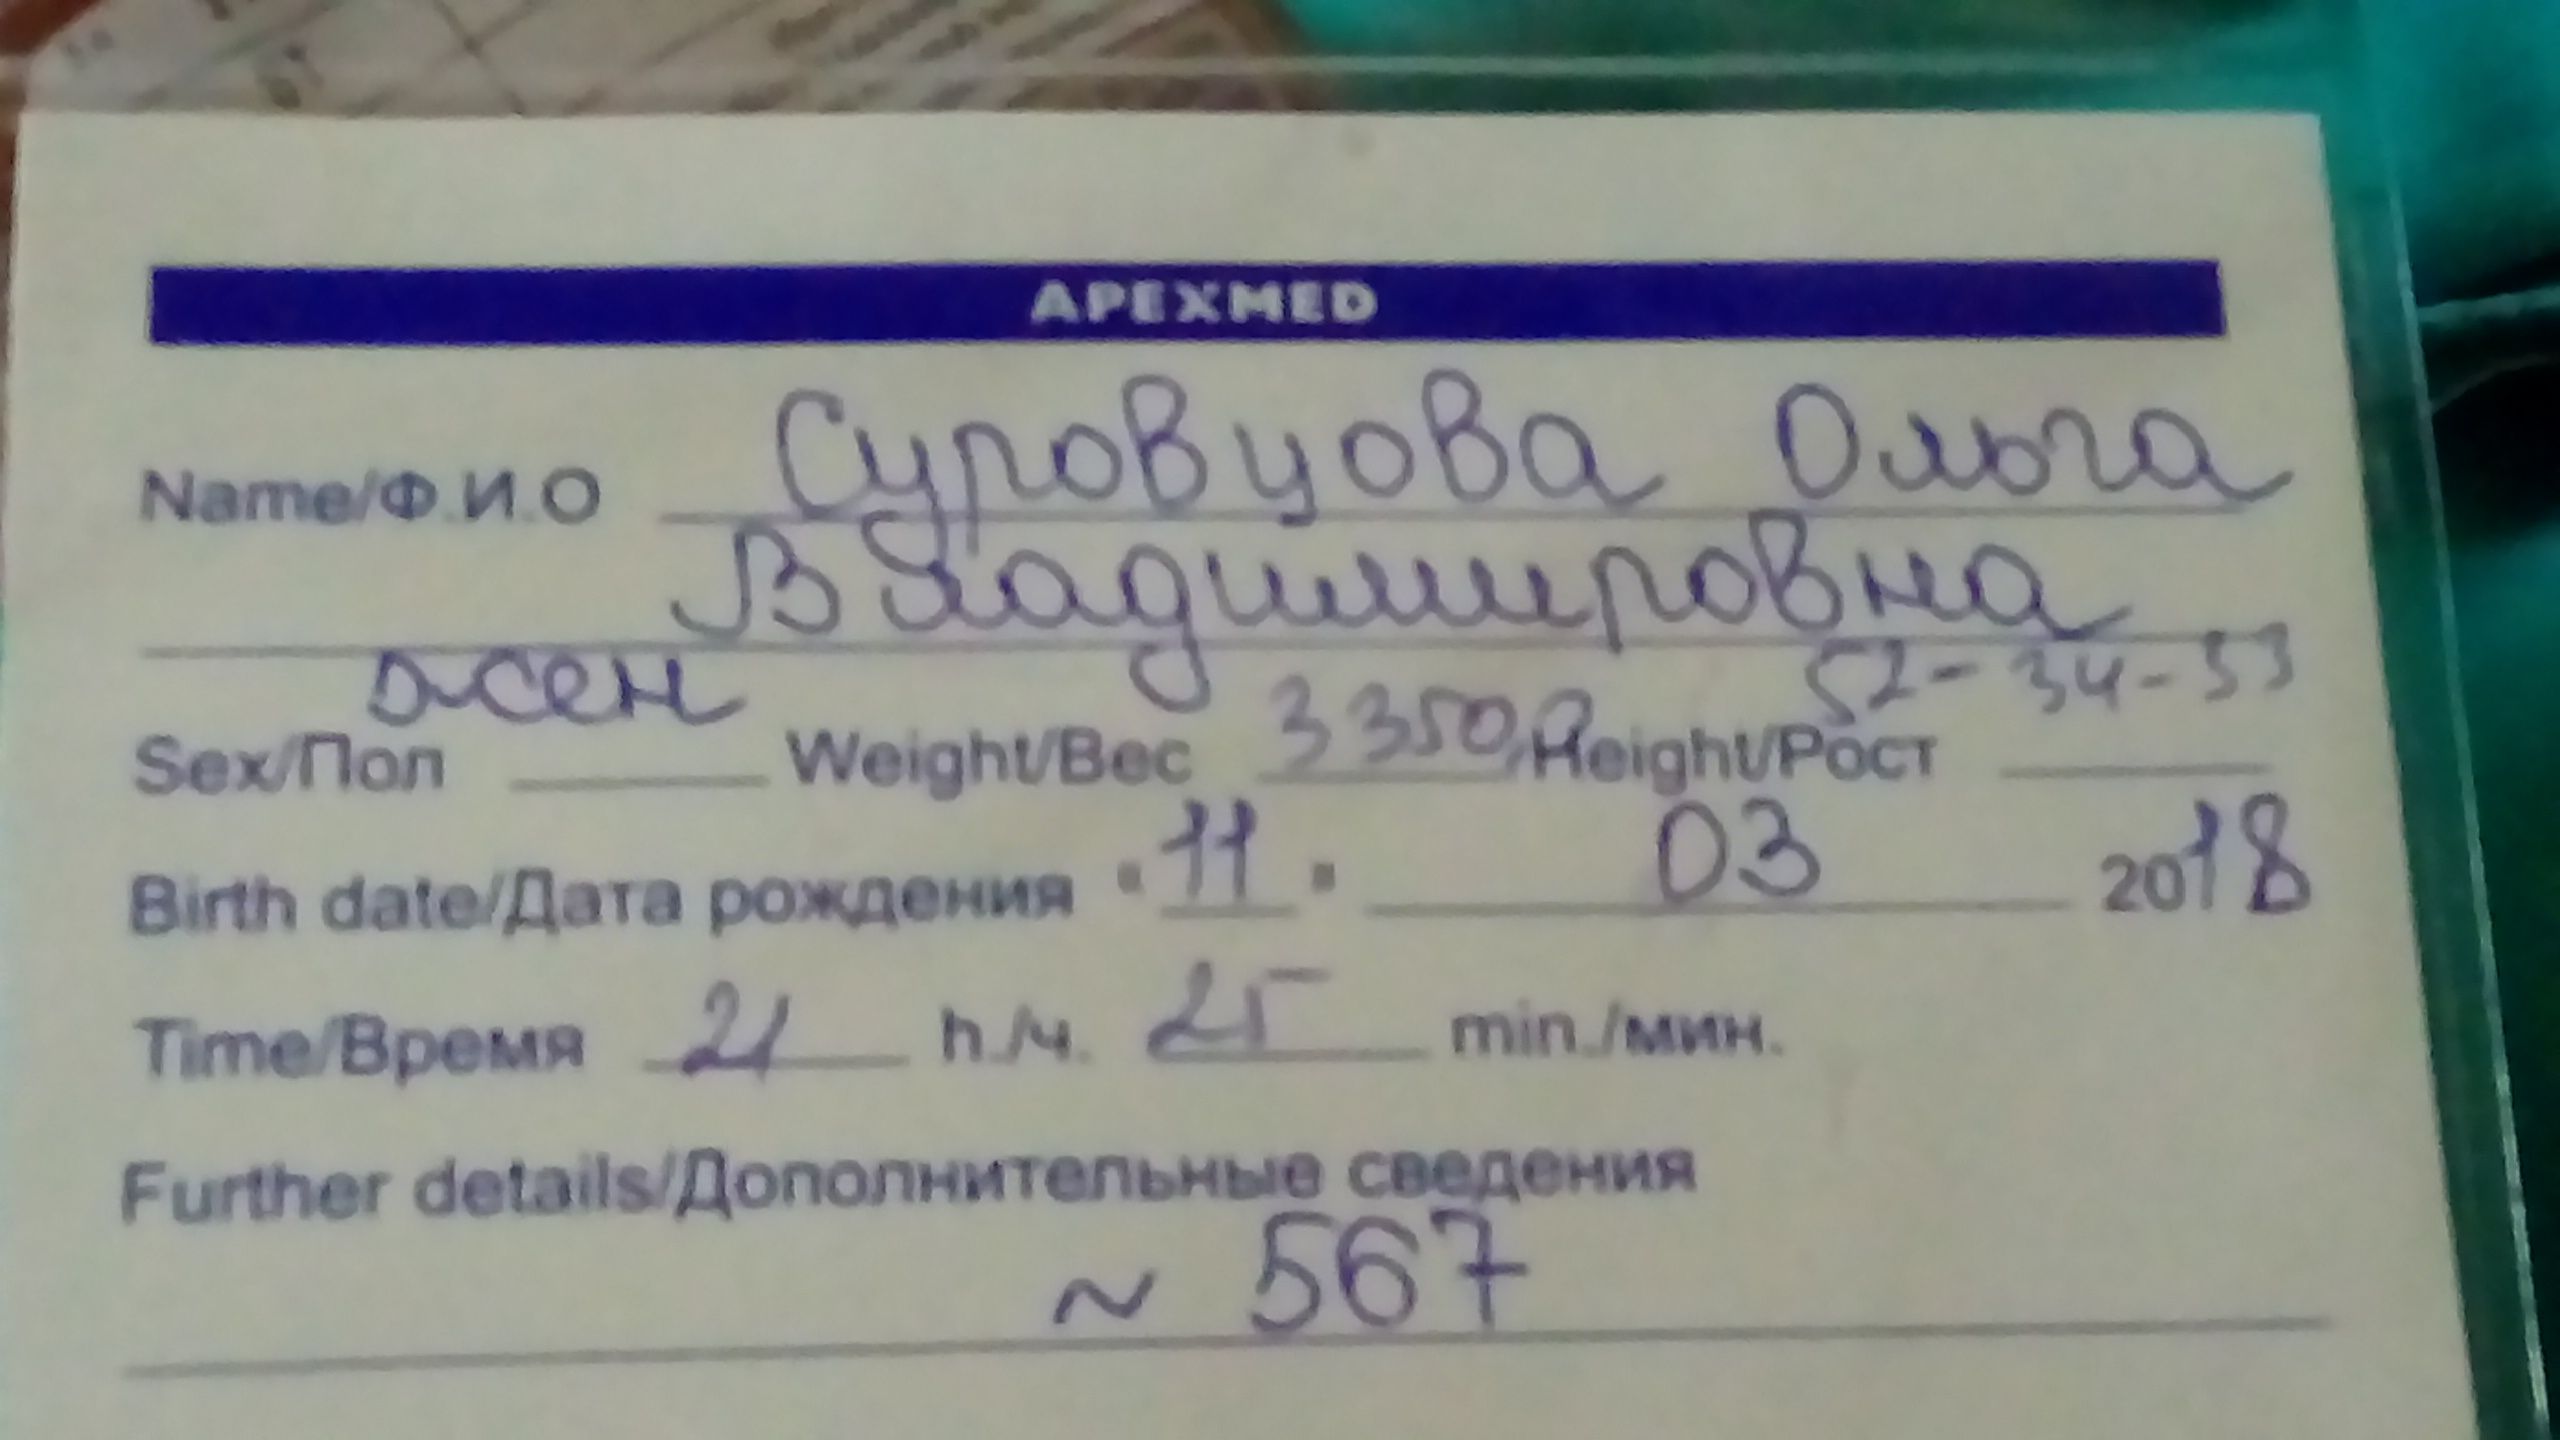 APEXMED
Name/Ф.И.О Суровцова Ольга
Владимировна
жен 52-34-33
Sex/Пол Weight/Вес 3350 Height/Рост
Birth date/Дата рождения 11 03 2018
Time/Время 21 h./ч. 25 min./мин.
Further details/Дополнительные сведения
~ 567